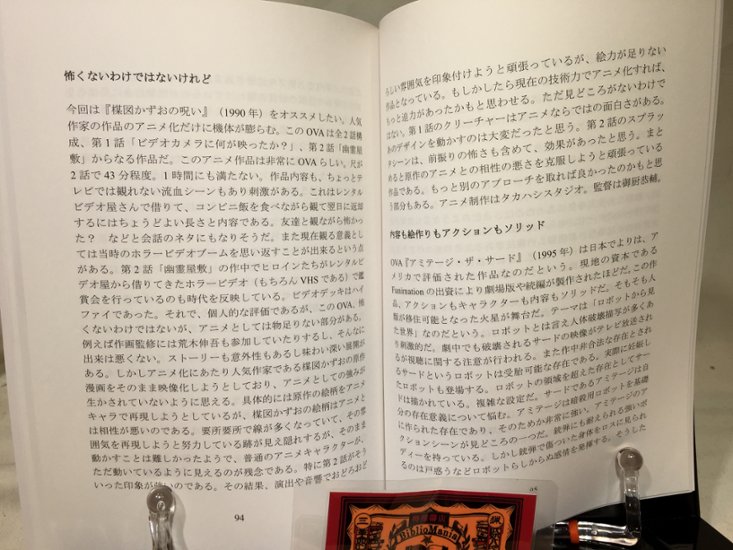 怖くないわけではないけれど
今回は『楳図かずおの呪い』（1990 年）をオススメしたい。人気
作家の作品のアニメ化だけに機体が膨らむ。この OVA は全 2 話構
成、第 1 話「ビデオカメラに何が映ったか？」、第 2 話「幽霊屋
敷」からなる作品だ。このアニメ作品は非常に OVA らしい。尺が
2 話で 43 分程度。1 時間にも満たない。作品内容も、ちょっとテ
レビでは観れない流血シーンもあり刺激がある。これはレンタル
ビデオ屋さんで借りて、コンビニ飯を食べながら観て翌日に返却
するにはちょうどよい長さと内容である。友達と観ながら怖かっ
た？　などと会話のネタにもなりそうだ。また現在観る意義とし
ては当時のホラービデオブームを思い返すことが出来るという点
がある。第 2 話「幽霊屋敷」の作中でヒロインたちがレンタルビ
デオ屋から借りてきたホラービデオ（もちろん VHS である）で鑑
賞会を行っているのも時代を反映している。ビデオデッキはハイ
ファイであった。それで、個人的な評価であるが、この OVA、怖
くないわけではないが、アニメとしては物足りない部分がある。
例えば作画監修には荒木伸吾も参加していたりするし、そんなに
出来は悪くない。ストーリーも意外性もあるし味わい深い展開が
ある。しかしアニメ化にあたり人気作家である楳図かずおの原作
漫画をそのまま映像化しようとしており、アニメとしての強みが
生かされていないように思える。具体的には原作の絵柄をアニメ
キャラで再現しようとしているが、楳図かずおの絵柄はアニメと
は相性が悪いのである。要所要所で線が多くなっていて、その雰
囲気を再現しようと努力している跡が見え隠れするが、そのまま
動かすことは難しかったようで、普通のアニメキャラクターが、
ただ動いているように見えるのが残念である。特に第 2 話がそう
いった印象が強いのである。その結果、演出や音響でおどろおど
94
ろしい雰囲気を印象付けようと頑張っているが、絵力が足りない
作品となっている。もしかしたら現在の技術力でアニメ化すれば、
もっと迫力があったかもと思わせる。ただ見どころがないわけで
はない。第 1 話のクリーチャーはアニメならではの面白さがある。
あのデザインを動かすのは大変だったと思う。第 2 話のスプラッ
タシーンは、前振りの怖さも含めて、効果があったと思う。まと
めると原作のアニメとの相性の悪さを克服しようと頑張っている
作品である。もっと別のアプローチを取れば良かったのかもと思
う部分もある。アニメ制作はタカハシスタジオ。監督は御厨恭輔。
内容も絵作りもアクションもソリッド
OVA『アミテージ・ザ・サード』（1995 年）は日本でよりは、ア
メリカで評価された作品なのだという。現地の資本である
Funimation の出資により劇場版や続編が製作されたほどだ。この作
品、アクションもキャラクターも内容もソリッドだ。そもそも人
類が移住可能となった火星が舞台だ。テーマは「ロボットから見
た世界」なのだという。ロボットとは言え人体破壊描写が多くあ
り刺激的だ。劇中でも破壊されるサードの映像がテレビ放送され
るが視聴に関する注意が行われる。また作中非合法な存在とされ
るサードというロボットは受胎可能な存在である。実際に妊娠し
たロボットも登場する。ロボットの領域を超えた存在としてサー
ドは描かれている。複雑な設定だ。サードであるアミテージは自
分の存在意義について悩む。アミテージは暗殺用ロボットを基礎
に作られた存在であり、そのためか非常に強い。アミテージのア
クションシーンが見どころの一つだ。銃弾にも耐えられる強いボ
ディーを持っている。しかし銃弾で傷ついた身体をロスに見られ
るのは戸惑うなどロボットらしからぬ感情を発揮する。そうした
95
BiblioMania